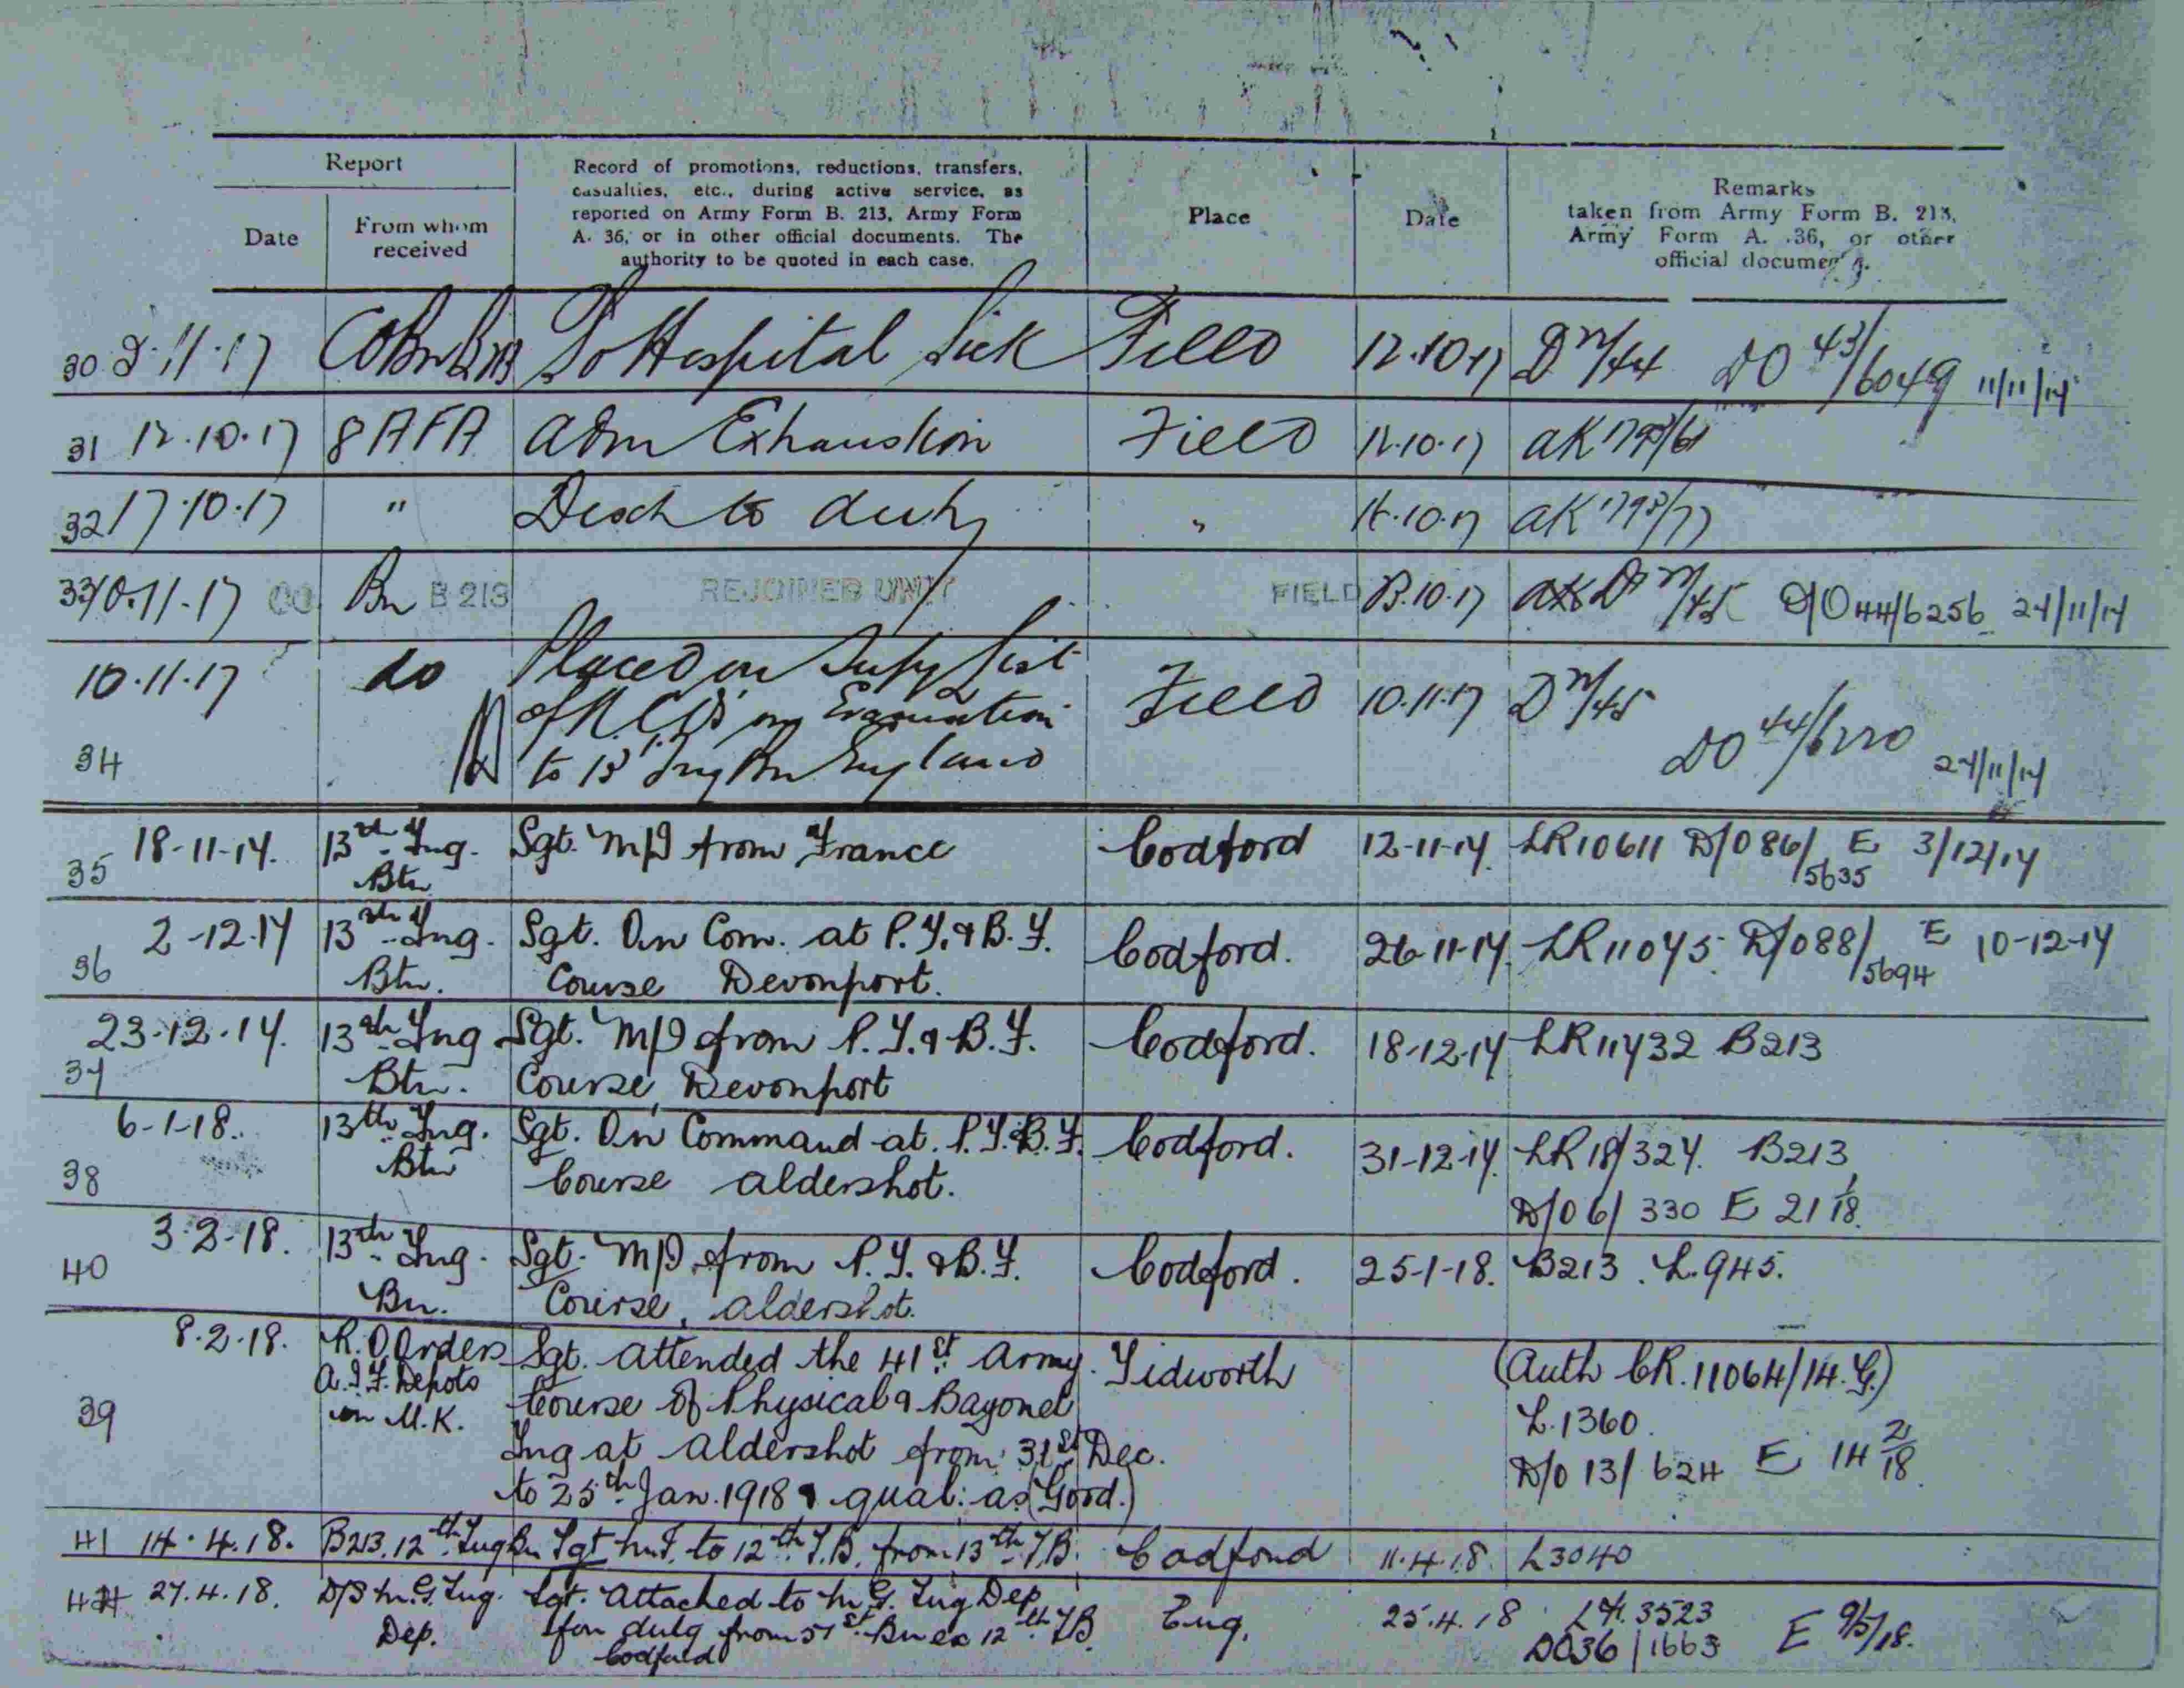 Report
Record of promotions, reductions, transfers,
casualties, etc., during active service, as
reported on Army Form B. 213, Army Form
A. 36, or in other official documents. The
authority to be quoted in each case.
Date
From whom
received
Place
Date
Remarks
taken from Army Form B. 213,
Army Form A. 36, or other
official documents.
30 8.11.17 CO Bn To Hospital Sick Field 12.10.17 DO 43/6049 11/11/17
31 12.10.17 8 AFA adm Exhaustion Field 12.10.17
32 17.10.17 " Disch to duty "
33 10.11.17 CO Bn B 213 REJOINED UNIT FIELD D/O 44/6256 24/11/17
10.11.17 do Placed on Supy List Field 10.11.17
of N.C.O's on Evacuation
34 to 13 Tng Bn England 24/11/17
35 18-11-17. 13th Tng. Btn Sgt. M/I from France Codford 12-11-17. LR10611 D/O 86/5635 E 3/12/17
36 2-12-17 13th Tng. Btn. Sgt. On Com. at P.T. & B.F. Codford. 26-11-17. LR11075 D/O 88/5694 E 10-12-17
Course Devonport.
37 23-12-17. 13th Tng Btn. Sgt. M/I from P.T. & B.F. Codford. 18-12-17 LR11732 B213
Course, Devonport
38 6-1-18. 13th Tng. Btn Sgt. On Command at. P.T. & B.F. Codford. 31-12-17. LR18/327. B213
Course aldershot. D/O 6/ 330 E 21 1/18.
40 3-2-18. 13th Tng. Bn. Sgt. M/I from P.T. & B.F. Codford. 25-1-18. B213. L.945.
Course, aldershot.
8.2.18. R.O Orders Sgt. attended the 41st Army Tidworth (Auth CR. 11064/14. G.)
A.I.F. Depots Course of Physical & Bayonet L.1360.
39 in U.K. Tng at aldershot from 31st Dec. D/O 13/ 624 E 14 2/18
to 25th Jan. 1918 & qual: as (Good.)
41 14.4.18. B213. 12th Tng Bn Sgt to 12th T.B. from 13th T.B. Codford 11.4.18. L3040
27.4.18. M.G. Tng. Sgt. Attached to M.G. Tng Dep Eng. 25.4.18 3523
Dep. for duty from 51st Bn ex 12th TB DO36/1663 E 9/5/18.
Codford